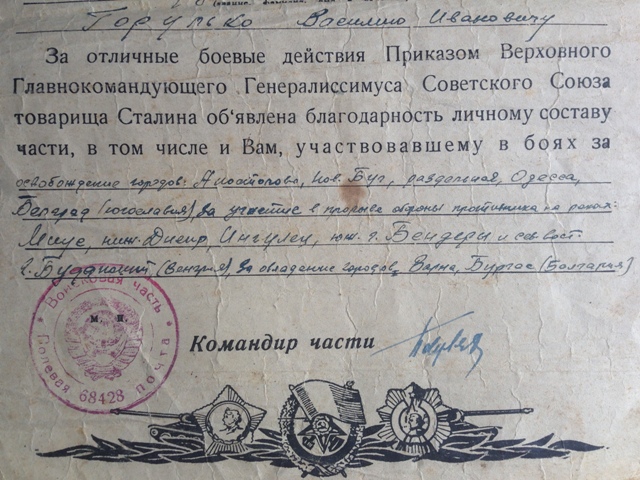 Горулько Василию Ивановичу
За отличные боевые действия Приказом Верховного
Главнокомандующего Генералиссимуса Советского Союза
товарища Сталина об'явлена благодарность личному составу
части, в том числе и Вам, участвовавшему в боях за
освобождение городов: Апостолово, Нов. Буг, раздельная, Одесса,
Белград (югославия), за участие в прорыве обороны противника на реках:
Миус, ниж. Днепр, Ингулец, юж. г. Бендеры и сев. вост.
г. Будапешт (Венгрия), за овладение городов, Варна, Бургас (Болгария)
Войсковая часть
м. п.
Полевая почта
68428
Командир части